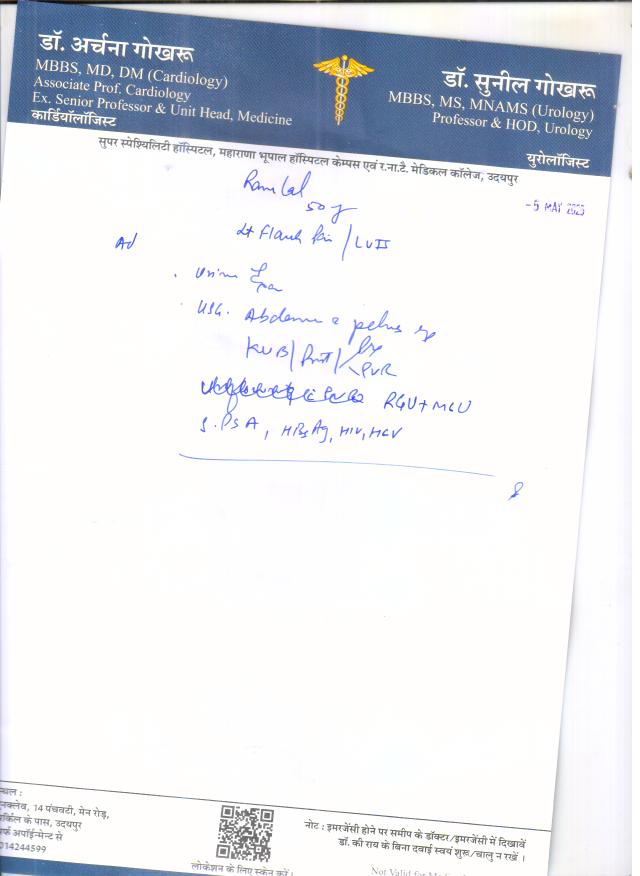 डॉ. अर्चना गोखरू
MBBS, MD, DM (Cardiology)
Associate Prof. Cardiology
Ex. Senior Professor & Unit Head, Medicine
कार्डियॉलॉजिस्ट
डॉ. सुनील गोखरू
MBBS, MS, MNAMS (Urology)
Professor & HOD, Urology
युरोलॉजिस्ट
सुपर स्पेश्यिलिटी हॉस्पिटल, महाराणा भूपाल हॉस्पिटल केम्पस एवं र.ना.टै. मेडिकल कॉलेज, उदयपुर
Ram Lal
50 y
-5 MAY 2023
Lt Flank Pain / LUTS
Ad
Urine
USG. Abdomen & pelvis
KUB / Prost / PVR
RGU + MCU
S. PSA, HBsAg, HIV, HCV
स्थल :
नक्लेव, 14 पंचवटी, मेन रोड़,
र्किल के पास, उदयपुर
र्फ अपॉईन्मेन्ट से
014244599
लोकेशन के लिए स्केन करें।
नोट : इमरजेंसी होने पर समीप के डॉक्टर/इमरजेंसी में दिखावें
डॉ. की राय के बिना दवाई स्वयं शुरू/चालु न रखें ।
Not Valid for